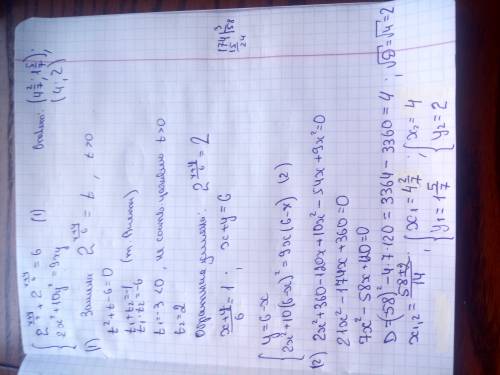 { 2^((x+y)/3) + 2^((x+y)/6) = 6 (1)
2x² + 10y² = 9xy
Ответ: (4 2/7; 1 5/7), (4; 2)
(1) Замена 2^((x+y)/6) = t, t>0
t² + t - 6 = 0
t₁ + t₂ = -1
t₁ · t₂ = -6 (т. Виета)
t₁ = -3 < 0, не соотв. условию t>0
t₂ = 2
Обратная замена: 2^((x+y)/6) = 2
(x+y)/6 = 1; x+y = 6
{ y = 6-x
2x² + 10(6-x)² = 9x(6-x) (2)
(2) 2x² + 360 - 120x + 10x² - 54x + 9x² = 0
21x² - 174x + 360 = 0
7x² - 58x + 120 = 0
D = (58)² - 4·7·120 = 3364 - 3360 = 4; √D = √4 = 2
x₁,₂ = (58±2)/14; { x₁ = 4 2/7 ; { x₂ = 4
y₁ = 1 5/7 y₂ = 2
174 3
15 58
24